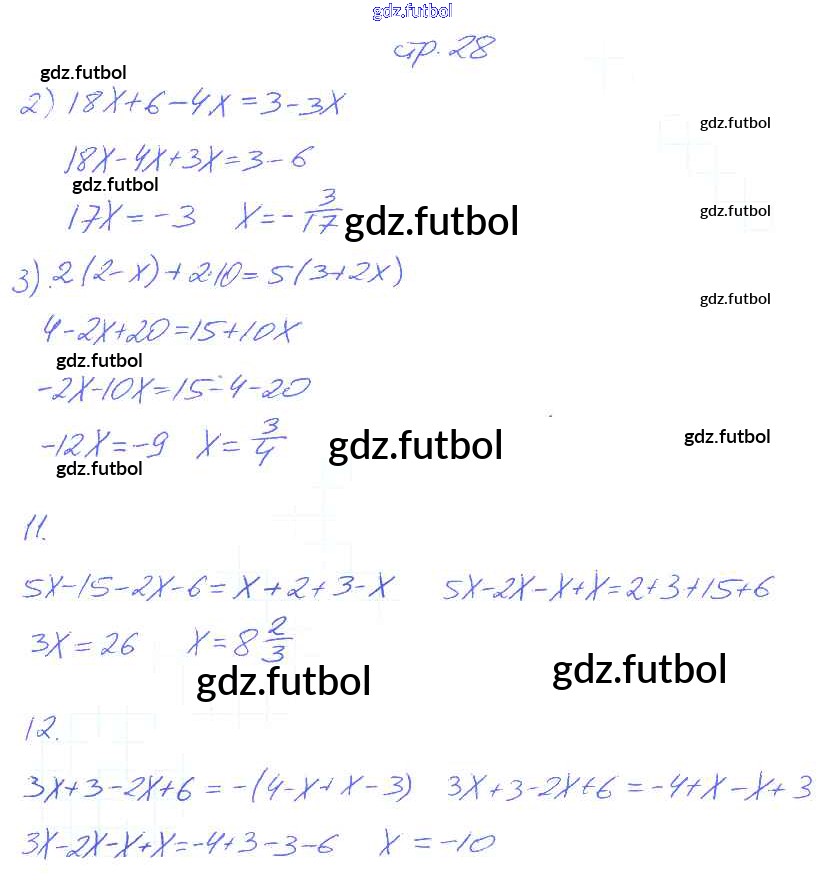 gdz.futbol
стр. 28
gdz.futbol
2) 18x+6-4x=3-3x
gdz.futbol
18x-4x+3x=3-6
gdz.futbol
17x=-3 x=-3/17 gdz.futbol
gdz.futbol
3) 2(2-x)+2·10=5(3+2x)
gdz.futbol
4-2x+20=15+10x
gdz.futbol
-2x-10x=15-4-20
-12x=-9 x=3/4 gdz.futbol gdz.futbol
gdz.futbol
11.
5x-15-2x-6=x+2+3-x 5x-2x-x+x=2+3+15+6
3x=26 x=8 2/3
gdz.futbol gdz.futbol
12.
3x+3-2x+6=-(4-x+x-3) 3x+3-2x+6=-4+x-x+3
3x-2x-x+x=-4+3-3-6 x=-10